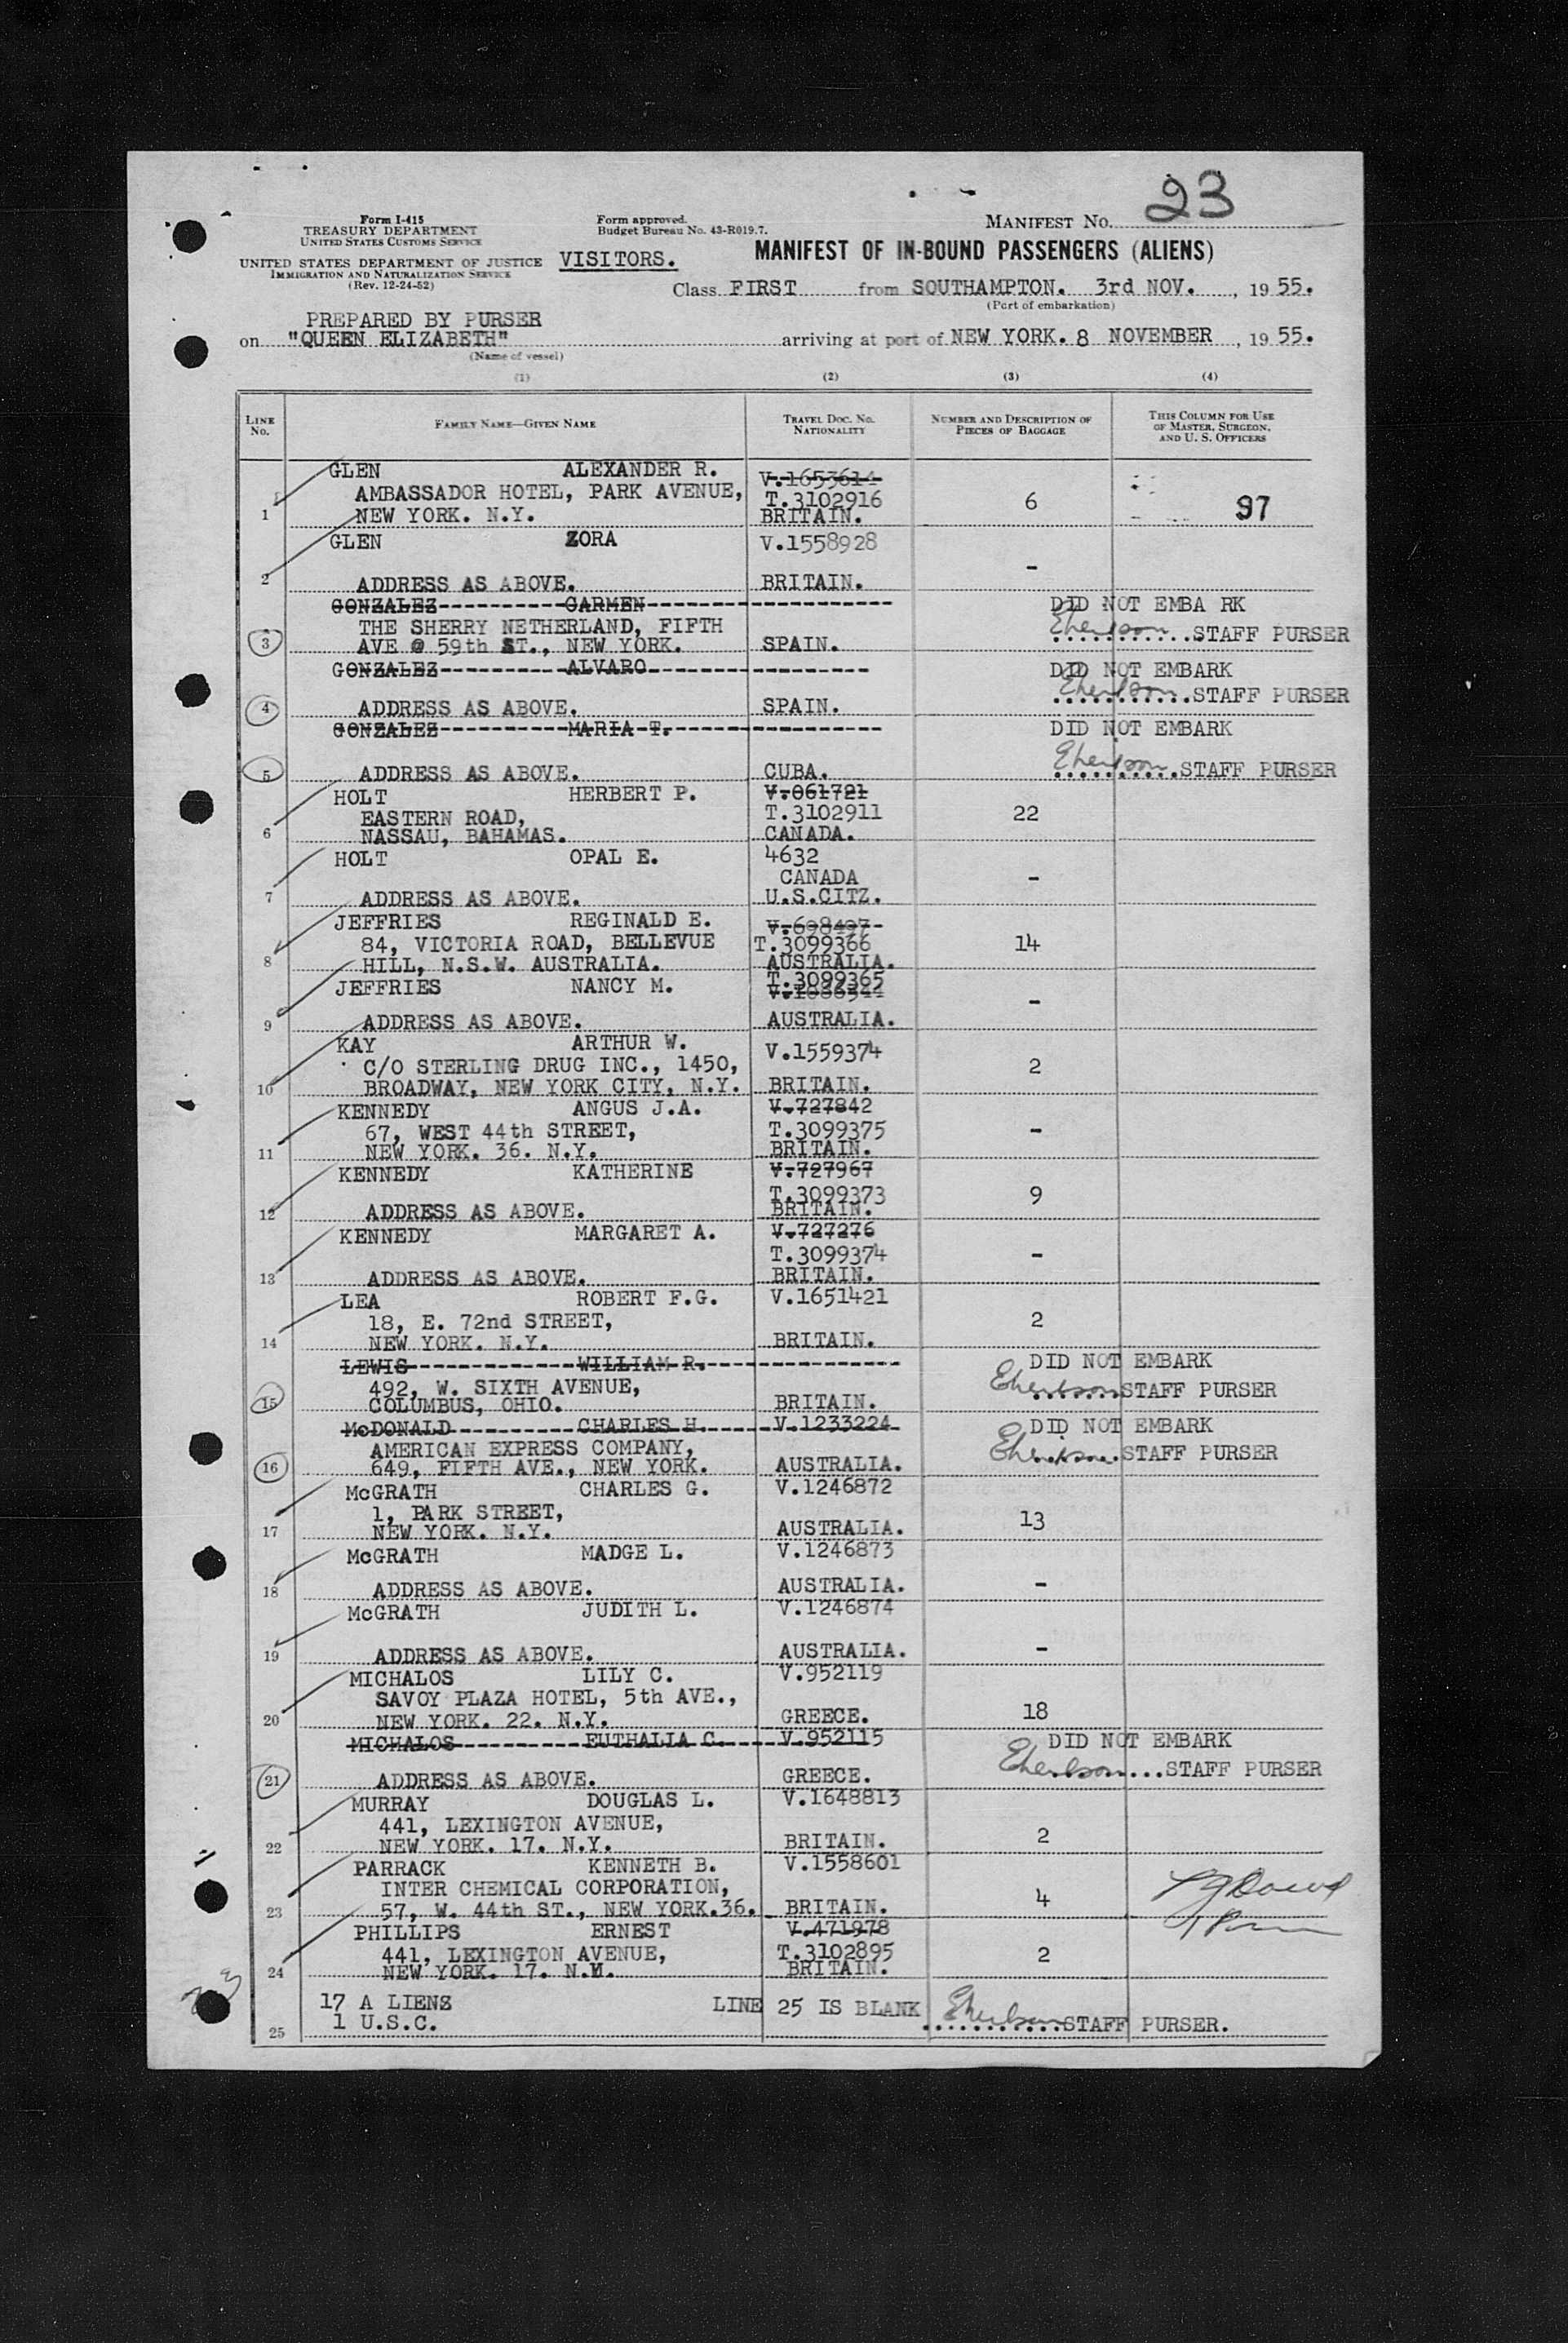 23
Form I-415
TREASURY DEPARTMENT
UNITED STATES CUSTOMS SERVICE
UNITED STATES DEPARTMENT OF JUSTICE
IMMIGRATION AND NATURALIZATION SERVICE
(Rev. 12-24-52)
Form approved.
Budget Bureau No. 43-R019.7.
MANIFEST No.
VISITORS.
MANIFEST OF IN-BOUND PASSENGERS (ALIENS)
Class FIRST from SOUTHAMPTON. 3rd NOV., 1955.
(Port of embarkation)
PREPARED BY PURSER
on "QUEEN ELIZABETH" arriving at port of NEW YORK. 8 NOVEMBER, 1955.
(Name of vessel)
(1) (2) (3) (4)
LINE No. FAMILY NAME—GIVEN NAME TRAVEL DOC. No. NATIONALITY NUMBER AND DESCRIPTION OF PIECES OF BAGGAGE THIS COLUMN FOR USE OF MASTER, SURGEON, AND U. S. OFFICERS
GLEN ALEXANDER R. V.1653614
AMBASSADOR HOTEL, PARK AVENUE, T.3102916 6 97
1 NEW YORK. N.Y. BRITAIN.
GLEN ZORA V.1558928
-
2 ADDRESS AS ABOVE. BRITAIN.
GONZALEZ CARMEN DID NOT EMBA RK
THE SHERRY NETHERLAND, FIFTH STAFF PURSER
3 AVE @ 59th ST., NEW YORK. SPAIN.
GONZALEZ ALVARO DID NOT EMBARK
STAFF PURSER
4 ADDRESS AS ABOVE. SPAIN.
GONZALEZ MARIA T. DID NOT EMBARK
5 ADDRESS AS ABOVE. CUBA. STAFF PURSER
HOLT HERBERT P. V.061721
EASTERN ROAD, T.3102911 22
6 NASSAU, BAHAMAS. CANADA.
HOLT OPAL E. 4632
CANADA -
7 ADDRESS AS ABOVE. U.S.CITZ.
JEFFRIES REGINALD E. V.698497
84, VICTORIA ROAD, BELLEVUE T.3099366 14
8 HILL, N.S.W. AUSTRALIA. AUSTRALIA.
T.3099365
JEFFRIES NANCY M. -
9 ADDRESS AS ABOVE. AUSTRALIA.
KAY ARTHUR W. V.1559374
C/O STERLING DRUG INC., 1450, 2
10 BROADWAY, NEW YORK CITY, N.Y. BRITAIN.
KENNEDY ANGUS J.A. V.727842
67, WEST 44th STREET, T.3099375 -
11 NEW YORK. 36. N.Y. BRITAIN.
KENNEDY KATHERINE V.727967
T.3099373 9
12 ADDRESS AS ABOVE. BRITAIN.
KENNEDY MARGARET A. V.727276
T.3099374 -
13 ADDRESS AS ABOVE. BRITAIN.
LEA ROBERT F.G. V.1651421
18, E. 72nd STREET, 2
14 NEW YORK. N.Y. BRITAIN.
LEWIS WILLIAM R. DID NOT EMBARK
492, W. SIXTH AVENUE, STAFF PURSER
15 COLUMBUS, OHIO. BRITAIN.
McDONALD CHARLES H. V.1233224 DID NOT EMBARK
AMERICAN EXPRESS COMPANY, STAFF PURSER
16 649, FIFTH AVE., NEW YORK. AUSTRALIA.
McGRATH CHARLES G. V.1246872
1, PARK STREET, 13
17 NEW YORK. N.Y. AUSTRALIA.
McGRATH MADGE L. V.1246873
18 ADDRESS AS ABOVE. AUSTRALIA. -
McGRATH JUDITH L. V.1246874
19 ADDRESS AS ABOVE. AUSTRALIA. -
MICHALOS LILY C. V.952119
SAVOY PLAZA HOTEL, 5th AVE.,
20 NEW YORK. 22. N.Y. GREECE. 18
MICHALOS EUTHALIA C. V.952115 DID NOT EMBARK
STAFF PURSER
21 ADDRESS AS ABOVE. GREECE.
MURRAY DOUGLAS L. V.1648813
441, LEXINGTON AVENUE,
22 NEW YORK. 17. N.Y. BRITAIN. 2
PARRACK KENNETH B. V.1558601
INTER CHEMICAL CORPORATION, 4
23 57, W. 44th ST., NEW YORK.36. BRITAIN.
PHILLIPS ERNEST V.471978
441, LEXINGTON AVENUE, T.3102895 2
24 NEW YORK. 17. N.Y. BRITAIN.
17 A LIENS LINE 25 IS BLANK
1 U.S.C. STAFF PURSER.
25